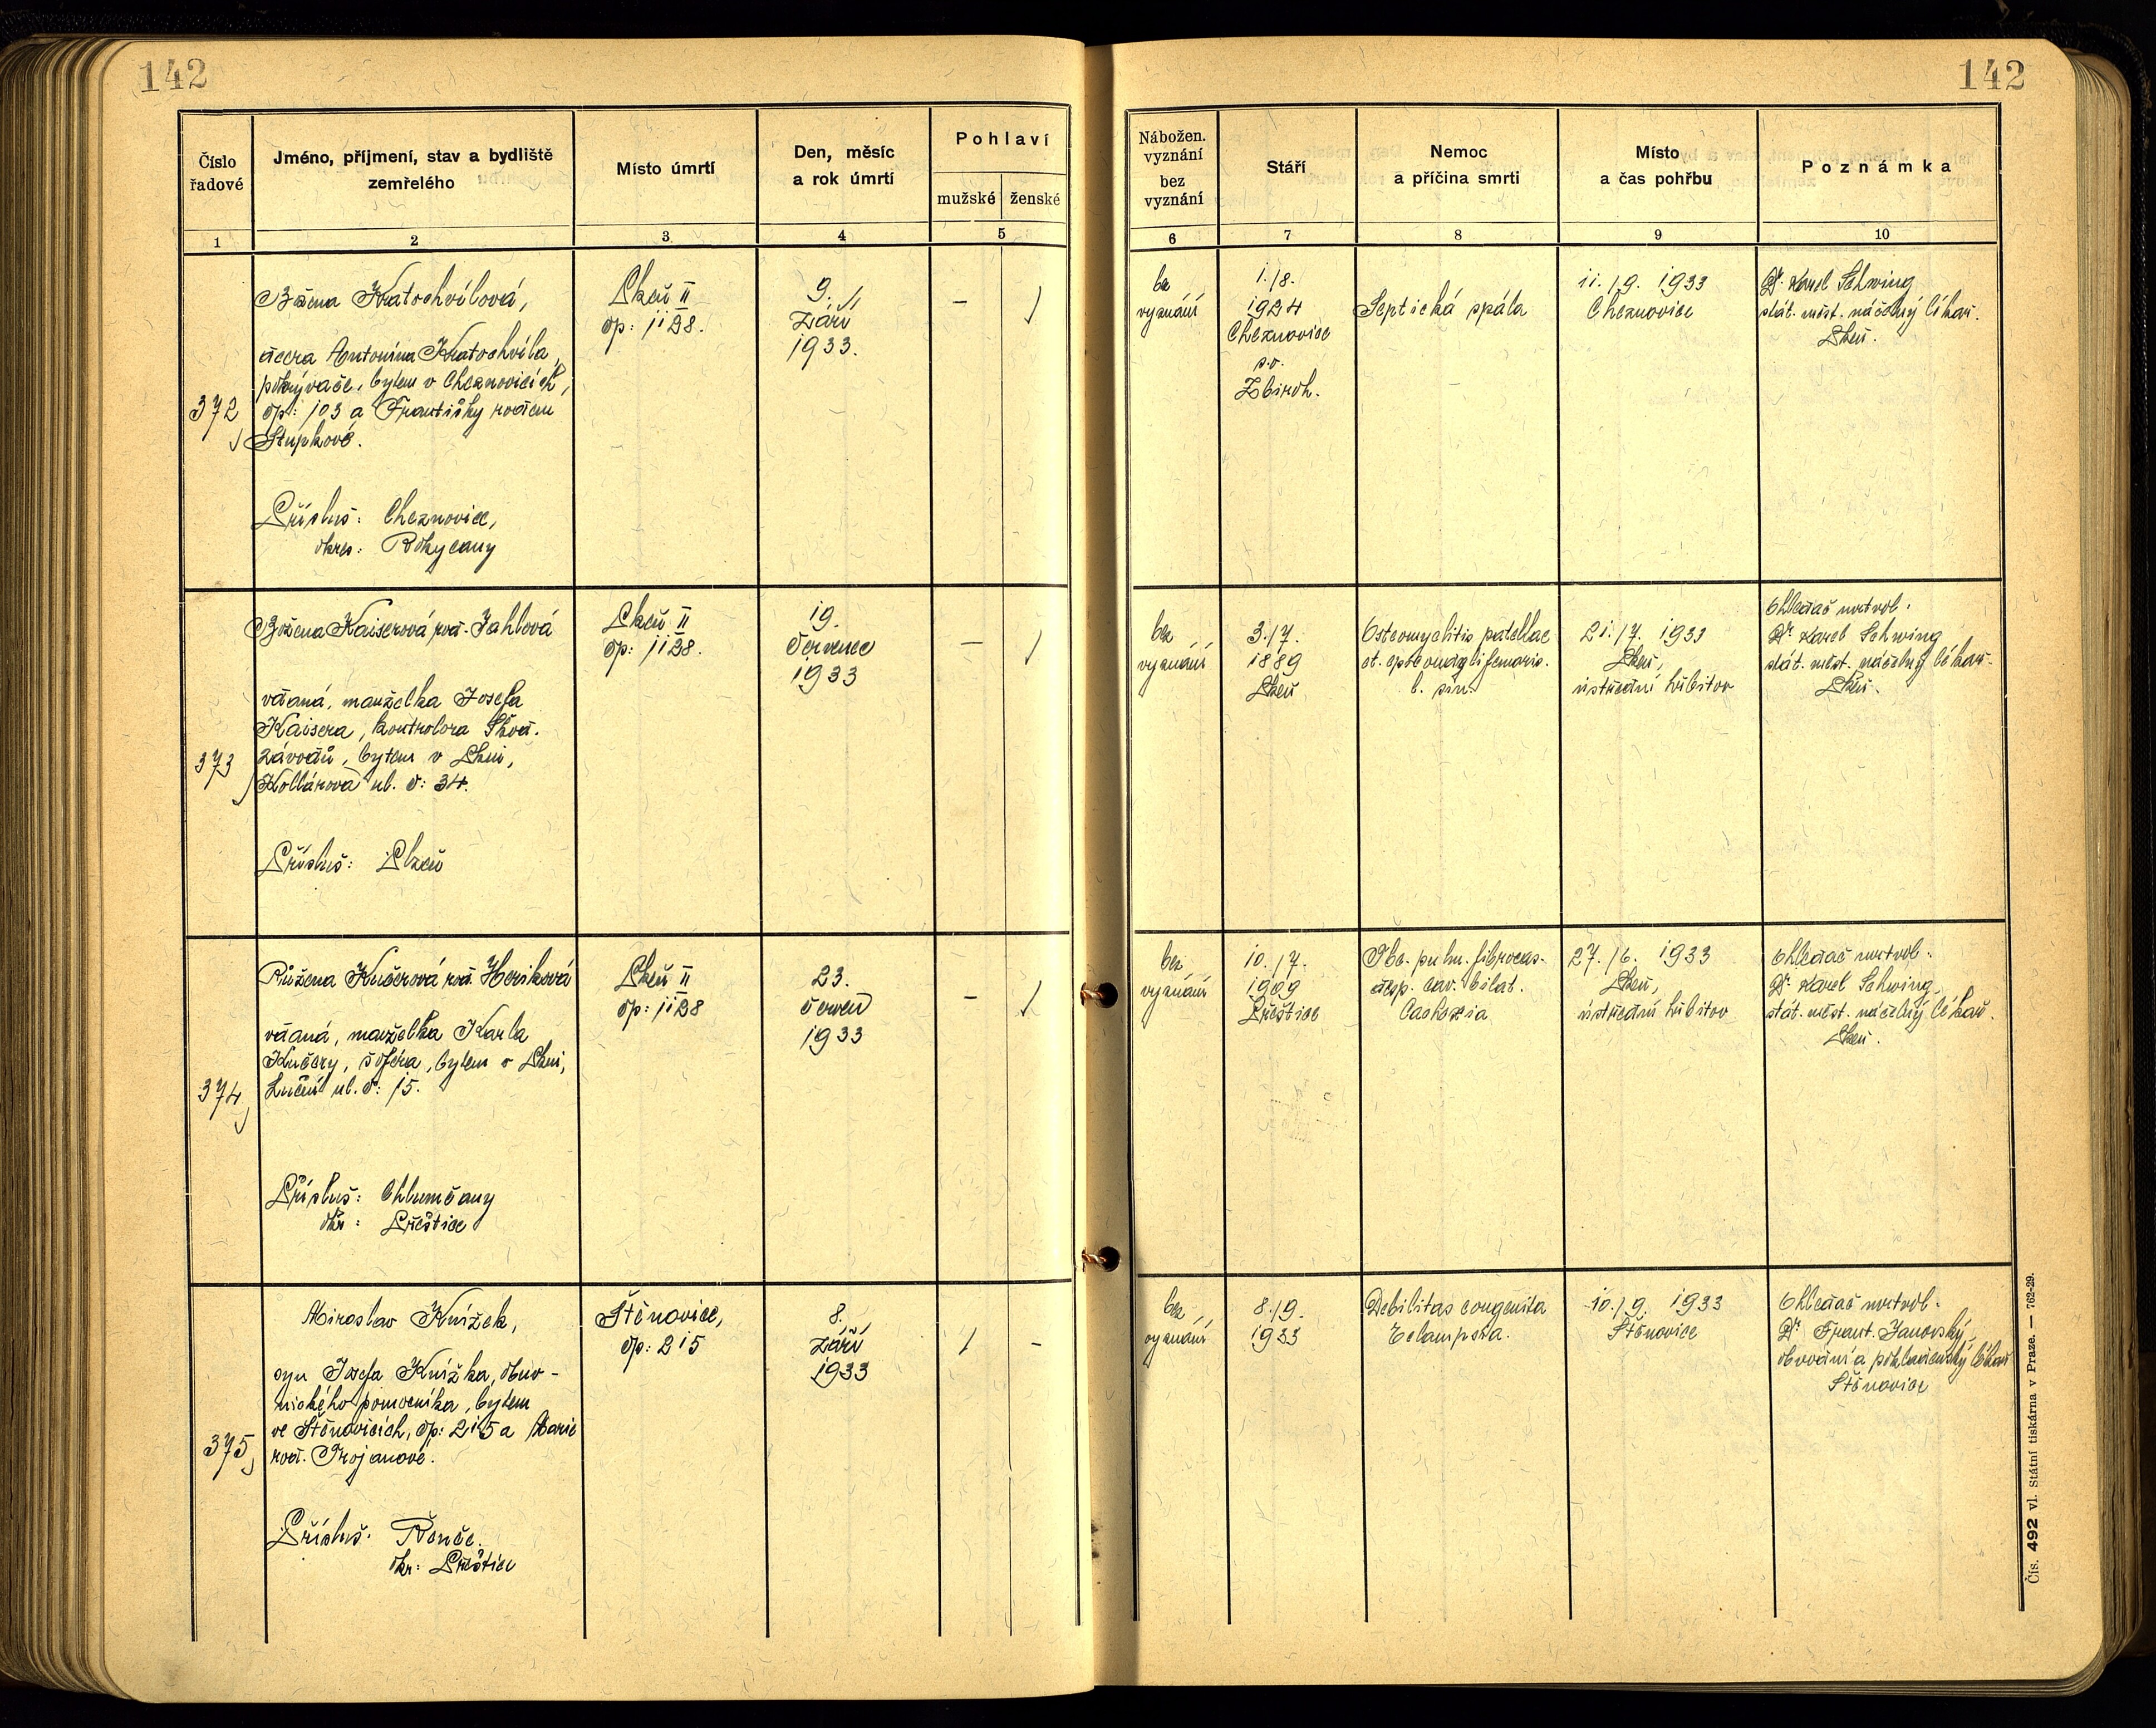 142
142
Číslo řadové
Jméno, příjmení, stav a bydliště zemřelého
Místo úmrtí
Den, měsíc a rok úmrtí
Pohlaví
mužské
ženské
Nábožen. vyznání
bez vyznání
Stáří
Nemoc a příčina smrti
Místo a čas pohřbu
Poznámka
1
2
3
4
5
6
7
8
9
10
372
Božena Kratochvílová,
dcera Antonína Kratochvíla,
pokrývače, bytem v Cheznovicích,
čp: 103 a Františky rozen
Stupkové.
Přísluš: Cheznovice,
okres: Rokycany
Plzeň II
čp: 1128.
9.
září
1933.
–
/
bez
vyznání
1./8.
1924
Cheznovice
s.o.
Zbiroh.
Septická spála
11./9. 1933
Cheznovice
Dr. Karel Schwing
stát. měst. náčelný lékař.
Plzeň.
373
Božena Kaiserová roz. Jahlová
vdaná, manželka Josefa
Kaisera, kontrolora Škod.
závodů, bytem v Plzni,
Kollárova ul. č: 34.
Přísluš: Plzeň
Plzeň II
čp: 1128.
19.
červenec
1933
–
/
bez
vyznání
3./7.
1889
Plzeň
Osteomyelitis patellae
et. femoris.
l. sin.
21./7. 1933
Plzeň,
ústřední hřbitov
Ohledač mrtvol:
Dr. Karel Schwing
stát. měst. náčelný lékař.
Plzeň.
374
Růžena Kučerová roz. Heriková
vdaná, manželka Karla
Kučery, šoféra, bytem v Plzni,
Luční ul. č: 15.
Přísluš: Chlumčany
okr: Přeštice
Plzeň II
čp: 1128
23.
červen
1933
–
/
bez
vyznání
10./7.
1909
Přeštice
Tbc. pulm. fibrocas.
desp. cav. bilat.
Cachexia
27./6. 1933
Plzeň,
ústřední hřbitov
Ohledač mrtvol:
Dr. Karel Schwing,
stát. měst. náčelný lékař.
Plzeň.
375
Miroslav Knížek,
syn Josefa Knížka, obuv-
nického pomocníka, bytem
ve Štěnovicích, čp: 215 a Marie
roz. Trojanové.
Přísluš: Řenče.
okr: Přeštice
Štěnovice,
čp: 215
8.
září
1933
/
–
bez
vyznání
8./9.
1933
Debilitas congenita
Eclampsia.
10./9. 1933
Štěnovice
Ohledač mrtvol:
Dr. Frant. Janovský,
obvodní a lékař
Štěnovice
Čís. 492 vl. Státní tiskárna v Praze. — 762-29.